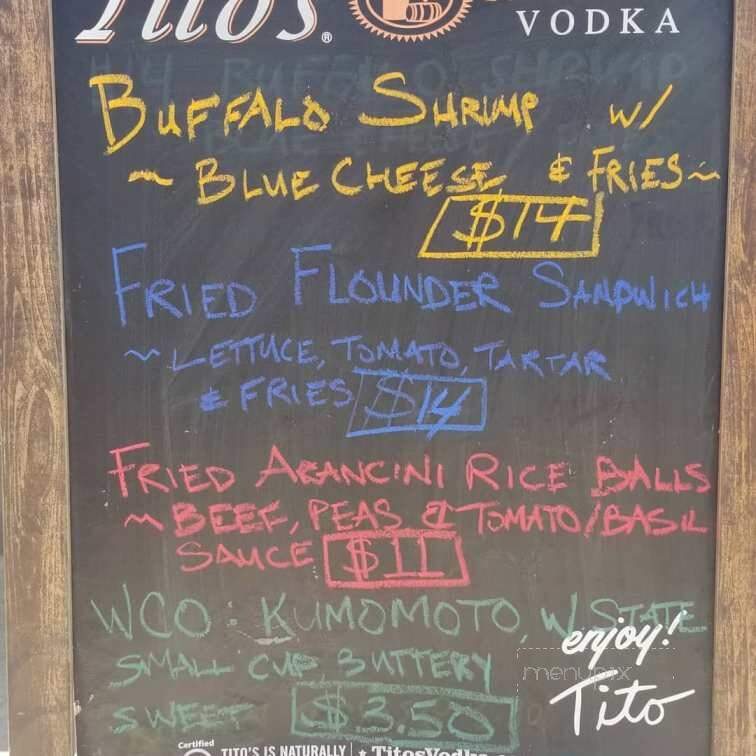 Tito's®
VODKA
BUFFALO SHRIMP W/
~ BLUE CHEESE & FRIES ~
$14
FRIED FLOUNDER SANDWICH
~ LETTUCE, TOMATO, TARTAR
& FRIES $14
FRIED ARANCINI RICE BALLS
~ BEEF, PEAS & TOMATO/BASIL
SAUCE $11
WCO: KUMOMOTO, W STATE
SMALL CUP BUTTERY
SWEET $3.50
enjoy!
menupix
Tito
Certified
TITO'S IS NATURALLY